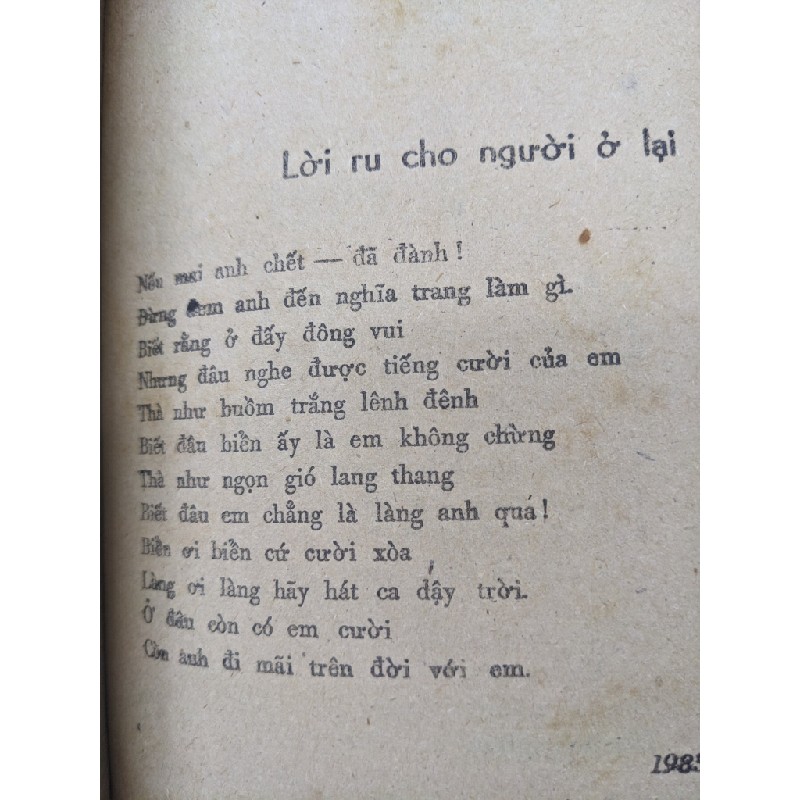 Lời ru cho người ở lại
Nếu mai anh chết — đã đành !
Đừng đem anh đến nghĩa trang làm gì.
Biết rằng ở đấy đông vui
Nhưng đâu nghe được tiếng cười của em
Thà như buồm trắng lênh đênh
Biết đâu biển ấy là em không chừng
Thà như ngọn gió lang thang
Biết đâu em chẳng là làng anh quá !
Biển ơi biển cứ cười xòa
Làng ơi làng hãy hát ca dậy trời.
Ở đâu còn có em cười
Còn anh đi mãi trên đời với em.
1985